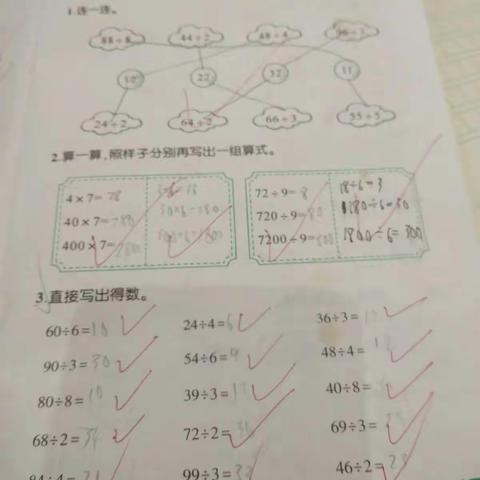 1.连一连。
88÷8 44÷2 48÷4 96÷3
12 22 32 11
24÷2 64÷2 66÷3 55÷5
2.算一算,照样子分别再写出一组算式。
4×7=28
40×7=280
400×7=
2800
3×6=18
30×6=180
300×6=1800
72÷9=8
720÷9=80
7200÷9=800
18÷6=3
180÷6=30
1800÷6=300
3.直接写出得数。
60÷6=10 24÷4=6 36÷3=
90÷3=30 54÷6=9 48÷4=
80÷8=10 39÷3=13 40÷8=
68÷2=34 72÷2= 69÷3=23
84÷4=21 99÷3=33 46÷2=23